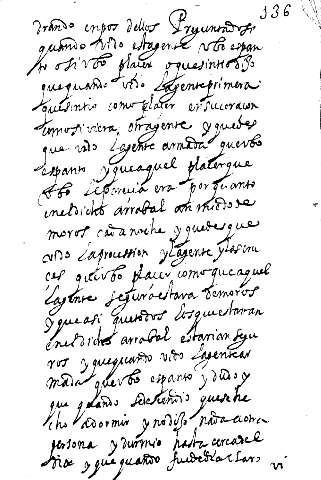 136
trando en pos dellos Preguntado si
quando vido esta gente vbo espan
to o si vbo placer o que sintio dijo
que quando vido la gente primera
que sintio como placer en su coraçon
como si viera otra gente y que des
que vido la gente armada que vbo
espanto y que aquel placer que
vbo le parecia era por quanto
en el dicho arrabal an miedo de
moros cada noche y que des que
vido la procession y la gente y las cru
ces que vbo placer como que aquel
la gente segura estava de moros
y que asi que todos los que estavan
en el dicho arrabal estarian segu
ros y que quando vido la gente ar
mada que vbo espanto y dudo y
que quando se decendio que se he
cho a dormir y no dijo nada a otra
persona y durmio hasta cerca del
dia y que quando fue de dia claro
vi